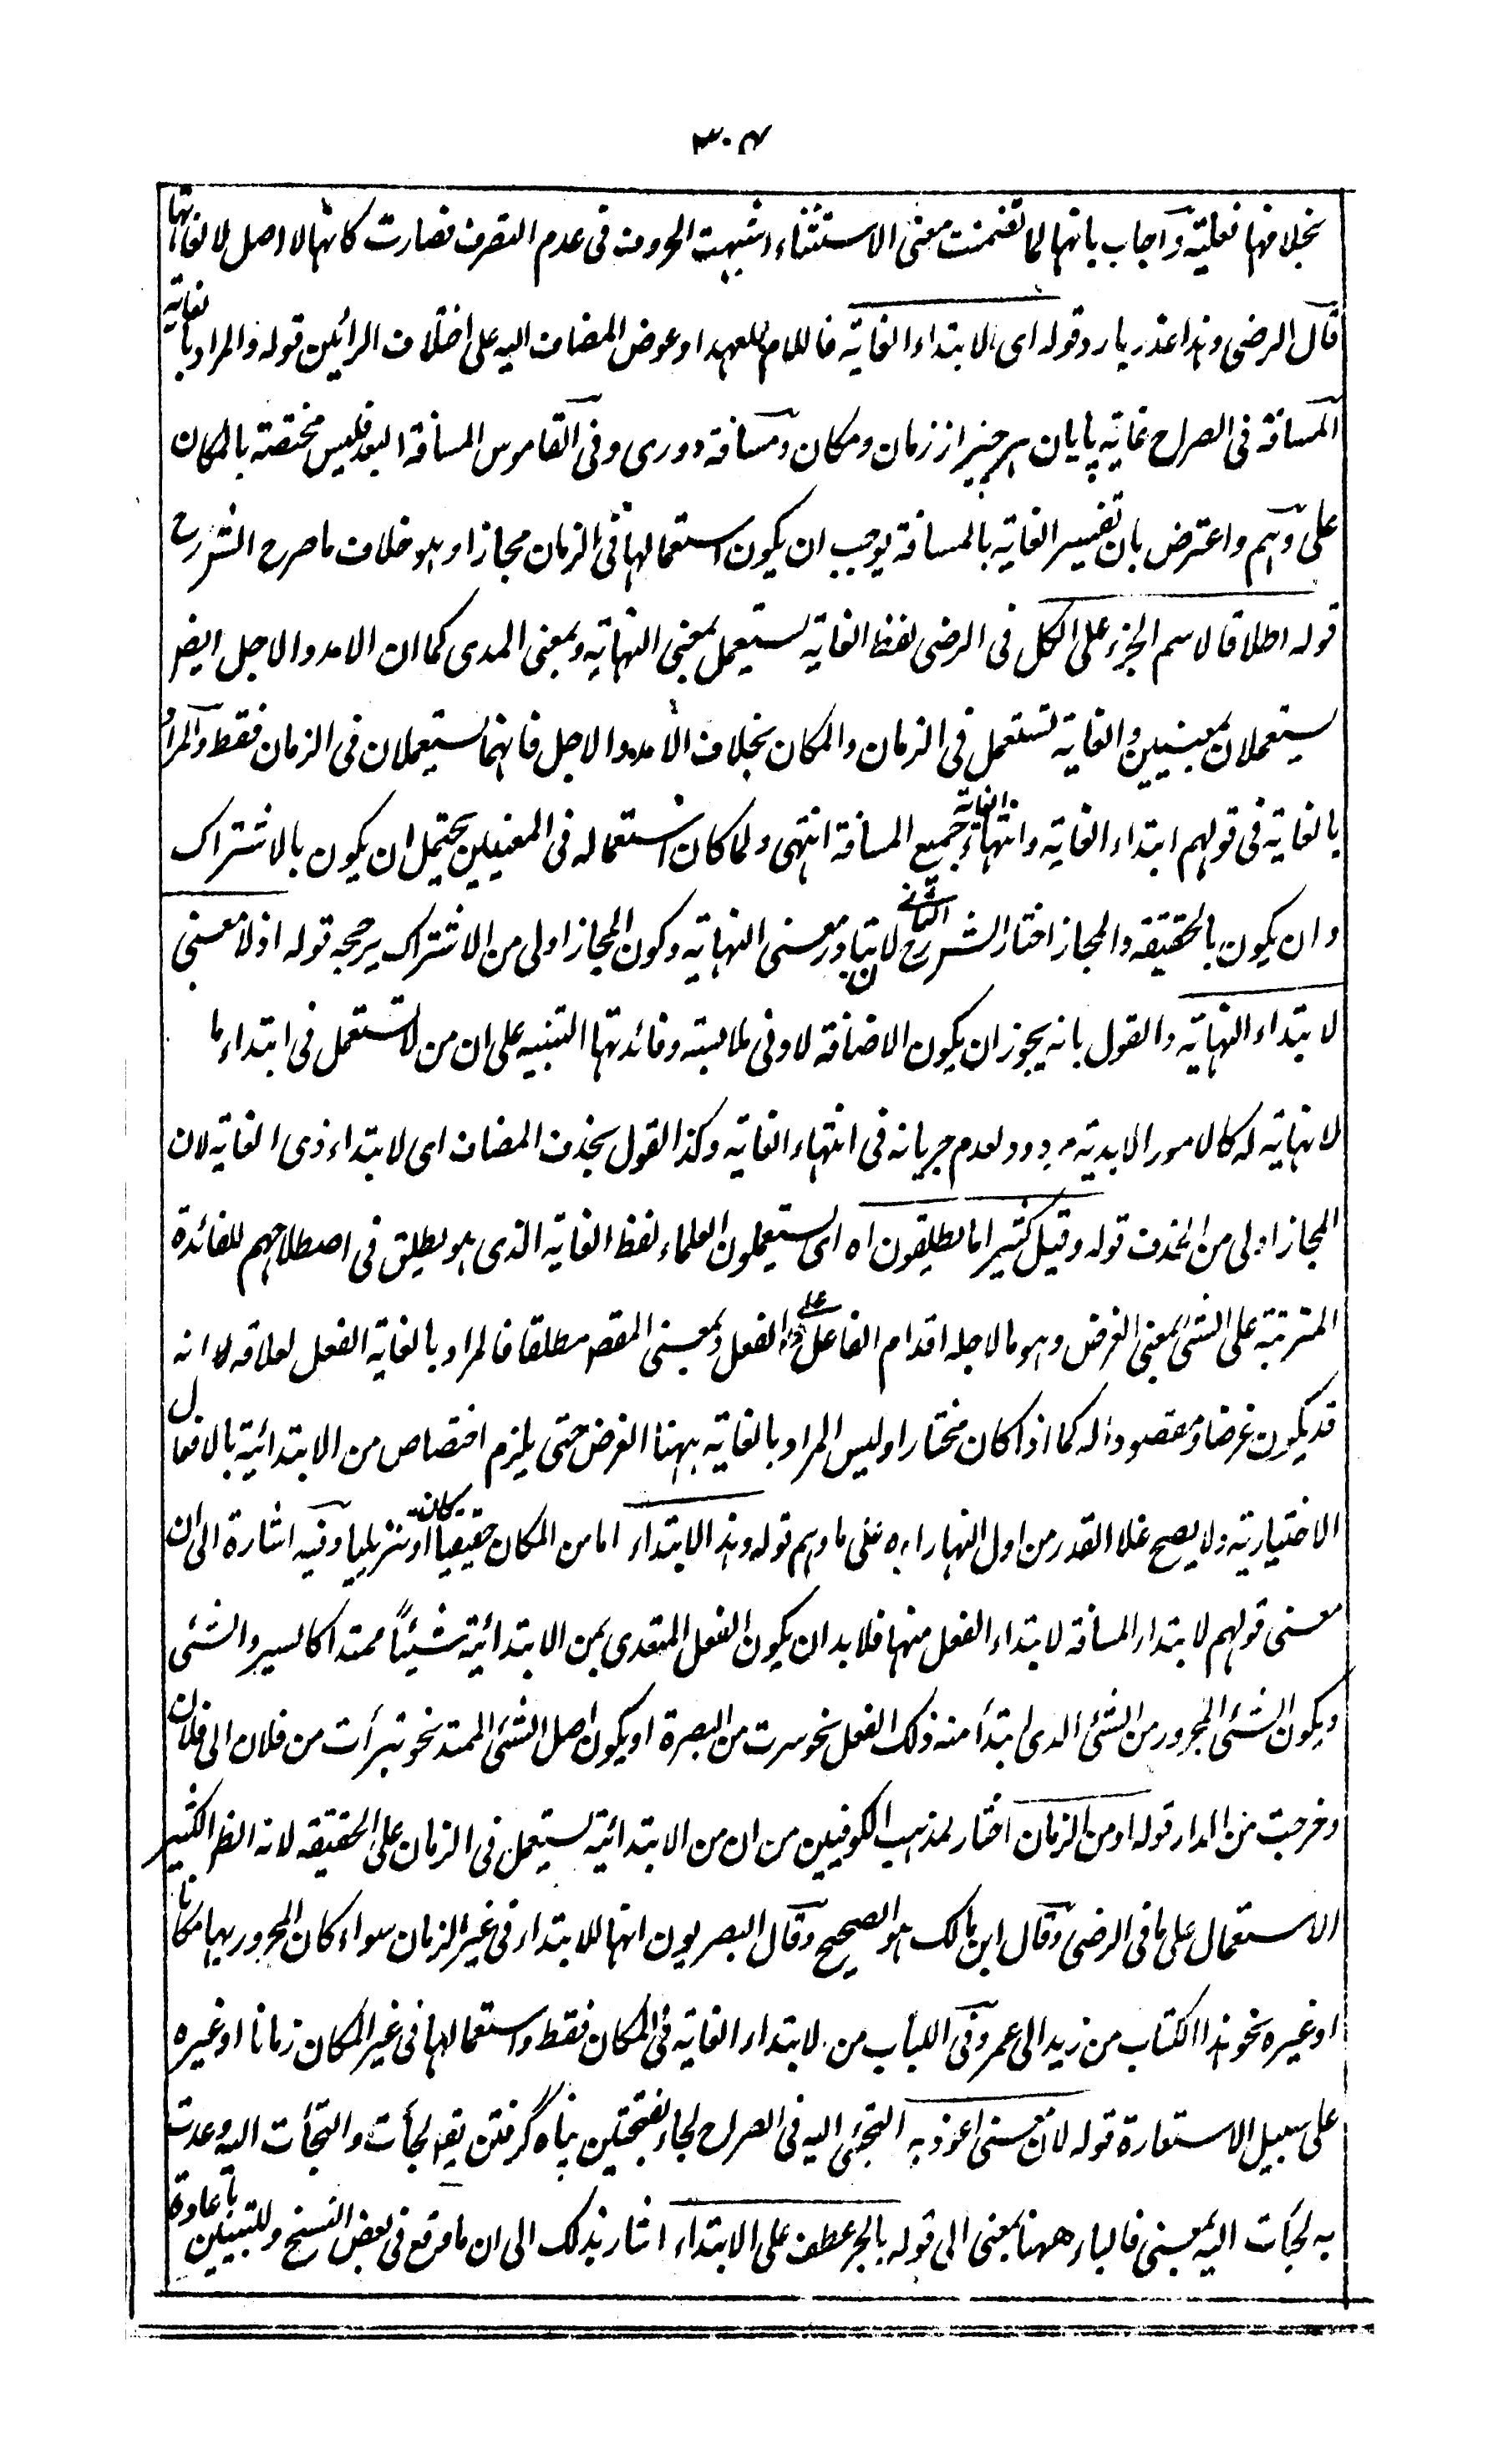 ٣٠٤
بخلافها فعلية وآجاب بانها لما تضمنت معنى الاستثناء اشبهت الحروف فى عدم التصرف فصارت كانها لا اصل لا لفاتها
قال الرضى وهذا عذر بارد قوله اى لابتداء الغاية فاللام للعهد او عوض المضاف اليه على اختلاف الرائين قوله والمراد بالغاية
المسافة فى الصراح غاية پايان هر چيز از زمان ومكان ومسافة دورى وفى القاموس المسافة البعد فليس مختصة بالمكان
على وهم واعترض بان تفسير الغاية بالمسافة يوجب ان يكون استعمالها فى الزمان مجازا وهو خلاف ما صرح الشرح
قوله اطلاقا لاسم الجزء على الكل فى الرضى لفظ الغاية يستعمل بمعنى النهاية وبمعنى المدى كما ان الامد والاجل ايضا
يستعملان بمعنيين والغاية تستعمل فى الزمان والمكان بخلاف الامد والاجل فانهما يستعملان فى الزمان فقط والمراد
بالغاية فى قولهم ابتداء الغاية وانتهاء الغاية جميع المسافة انتهى ولما كان استعماله فى المعنيين يحتمل ان يكون بالاشتراك
وان يكون بالحقيقة والمجاز اختار الشرح الثانى لان تبادر معنى النهاية وكون المجاز اولى من الاشتراك يرجحه قوله اذ لا معنى
لابتداء النهاية والقول بانه يجوز ان يكون الاضافة لادنى ملابسته وفائدتها التنبيه على ان من لا تستعمل فى ابتداء ما
لا نهاية له كالامور الابدية مردود لعدم جريانه فى انتهاء الغاية وكذا القول بحذف المضاف اى لابتداء ذى الغاية لان
المجاز اولى من الحذف قوله وقيل كثيرا ما يطلقون اه اى يستعملون العلماء لفظ الغاية الذى هو يطلق فى اصطلاحهم للفائدة
المترتبة على الشئ بمعنى الغرض وهو ما لاجله اقدام الفاعل على الفعل وبمعنى المقصد مطلقا فالمراد بالغاية الفعل لعلاقه انه
قد يكون غرضا ومقصودا له كما اذا كان مختارا وليس المراد بالغاية ههنا الغرض حتى يلزم اختصاص من الابتدائية بالافعال
الاختيارية ولا يصح غلا القدر من اول النهار اه على ما وهم قوله وهذا الابتداء اما من المكان حقيقيا كان او تنزيليا وفيه اشارة الى ان
معنى قولهم لابتداء المسافة لابتداء الفعل منها فلا بد ان يكون الفعل المتعدى بمن الابتدائية شيئاً ممتدا كالسير والشئى
ويكون الشئ المجرور من الشئ الذى ابتدأ منه ذلك الفعل نحو سرت من البصرة او يكون اصل الشئ الممتد نحو تبرأت من فلان الى فلان
وخرجت من الدار قوله او من الزمان اختار لمذهب الكوفيين من ان من الابتدائية يستعمل فى الزمان على الحقيقة لانه الظ الكثير
الاستعمال على ما فى الرضى وقال ابن مالك هو الصحيح وقال البصريون انها للابتداء فى غير الزمان سواء كان المجرور بها مكانا
او غيره نحو هذا الكتاب من زيد الى عمرو وفى اللباب من لابتداء الغاية فى المكان فقط واستعمالها فى غير المكان زمانا او غيره
على سبيل الاستعارة قوله لان معنى اعوذ به التجئى اليه فى الصراح لجاء بفتحتين پناه گرفتن يقم لجأت والتجأت اليه وعدت
به لجأت اليه بمعنى فالباء ههنا بمعنى الى قوله بالجر عطف على الابتداء اشار بذلك الى ان ما وقع فى بعض النسخ وللتبيين باعادة